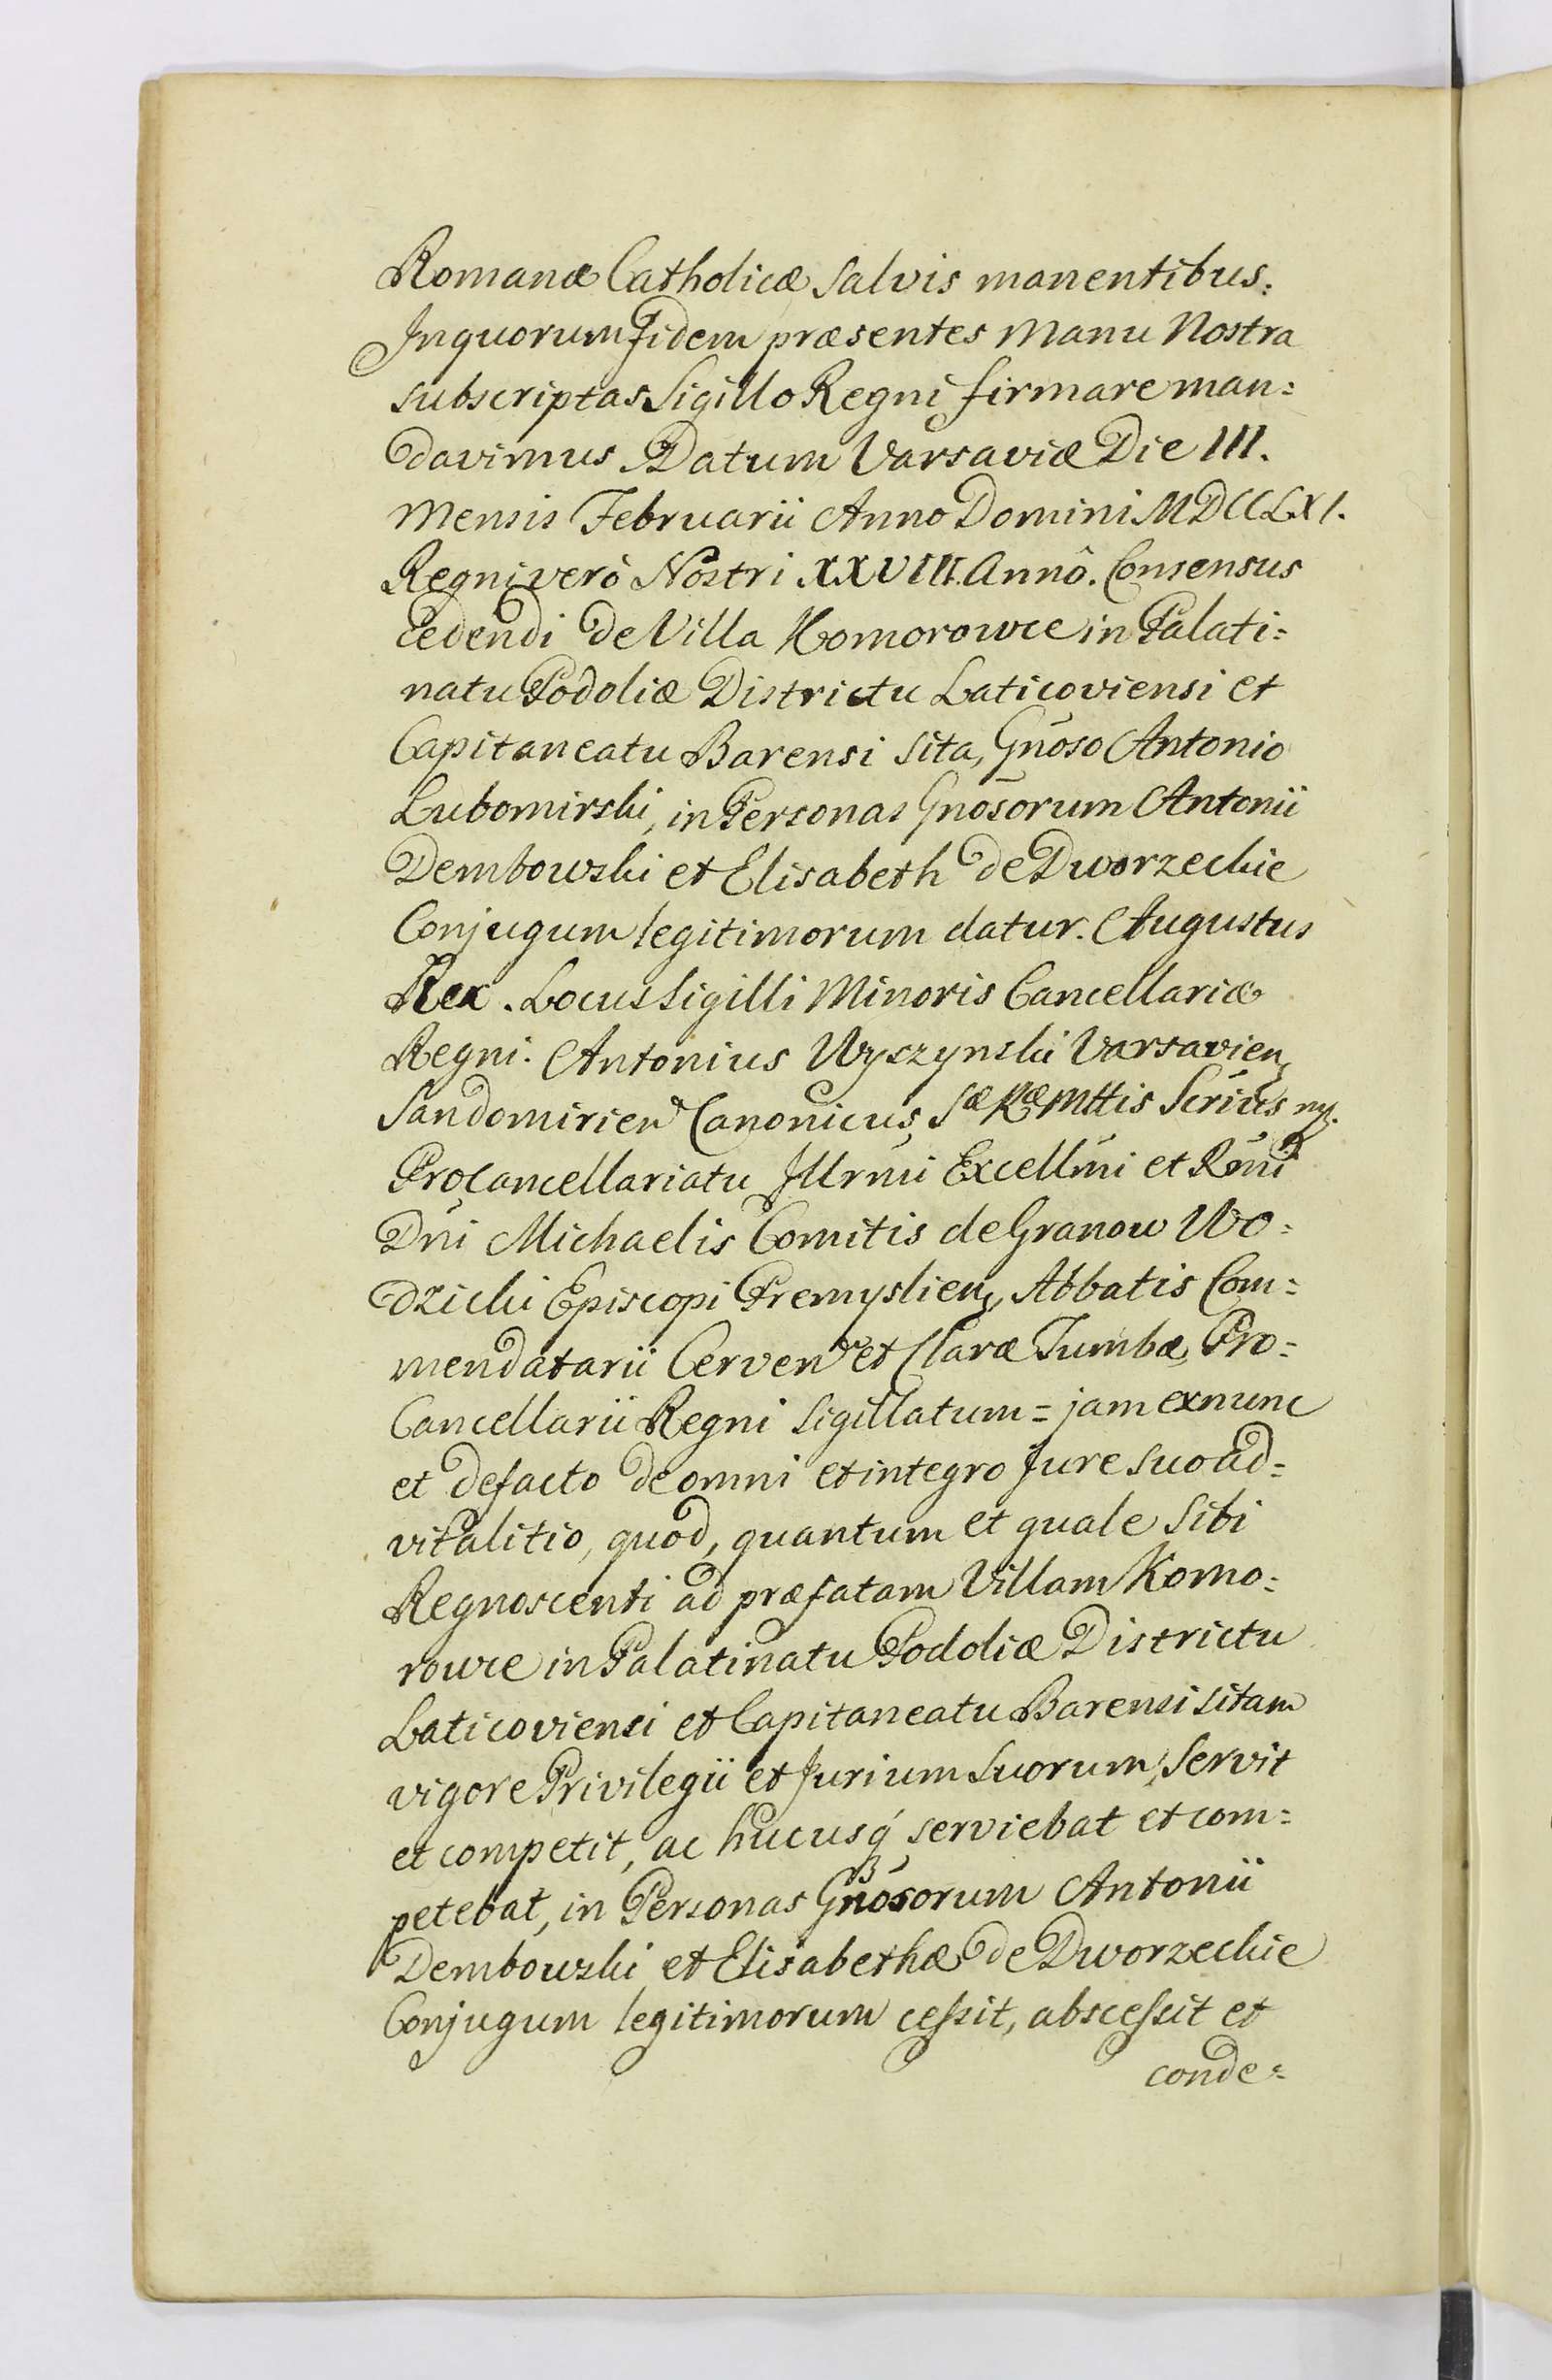 Romanæ Catholicæ Salvis manentibus.
In quorum fidem præsentes Manu Nostra
subscriptas Sigillo Regni firmare man=
davimus. Datum Varsaviæ Die III.
Mensis Februarii Anno Domini MDCCLXI.
Regni verò Nostri XXVIII. Annô. Consensus
cedendi de Villa Komorowce in Palati=
natu Podoliæ Districtu Laticoviensi et
Capitaneatu Barensi sita, Gnōso Antonio
Lubomirski, in Personas Gnōsorum Antonii
Dembowski et Elisabeth de Dworzeckie
Conjugum legitimorum datur. Augustus
Rex. Locus Sigilli Minoris Cancellariæ
Regni. Antonius Wyszynski Varsavien,
Sandomirien Canonicus, Sæ Ræ Mttis Scrius
Procancellariatu Illrmi Excellmi et Rmi
Dni Michaelis Comitis de Granow Wo=
dzicki Episcopi Premyslien, Abbatis Com=
mendatarii Cerven et Claræ Tumbæ, Pro=
Cancellarii Regni Sigillatum = jam exnunc
et defacto de omni et integro Jure suo ad=
vitalitio, quod, quantum et quale Sibi
Regnoscenti ad præfatam Villam Komo=
rowce in Palatinatu Podoliæ Districtu
Laticoviensi et Capitaneatu Barensi sitam
vigore Privilegii et Jurium Suorum, Servit
et competit, ac hucusq́ serviebat et com=
petebat, in Personas Gnōsorum Antonii
Dembowski et Elisabethæ de Dworzeckie
Conjugum legitimorum cessit, abscessit et
conde=